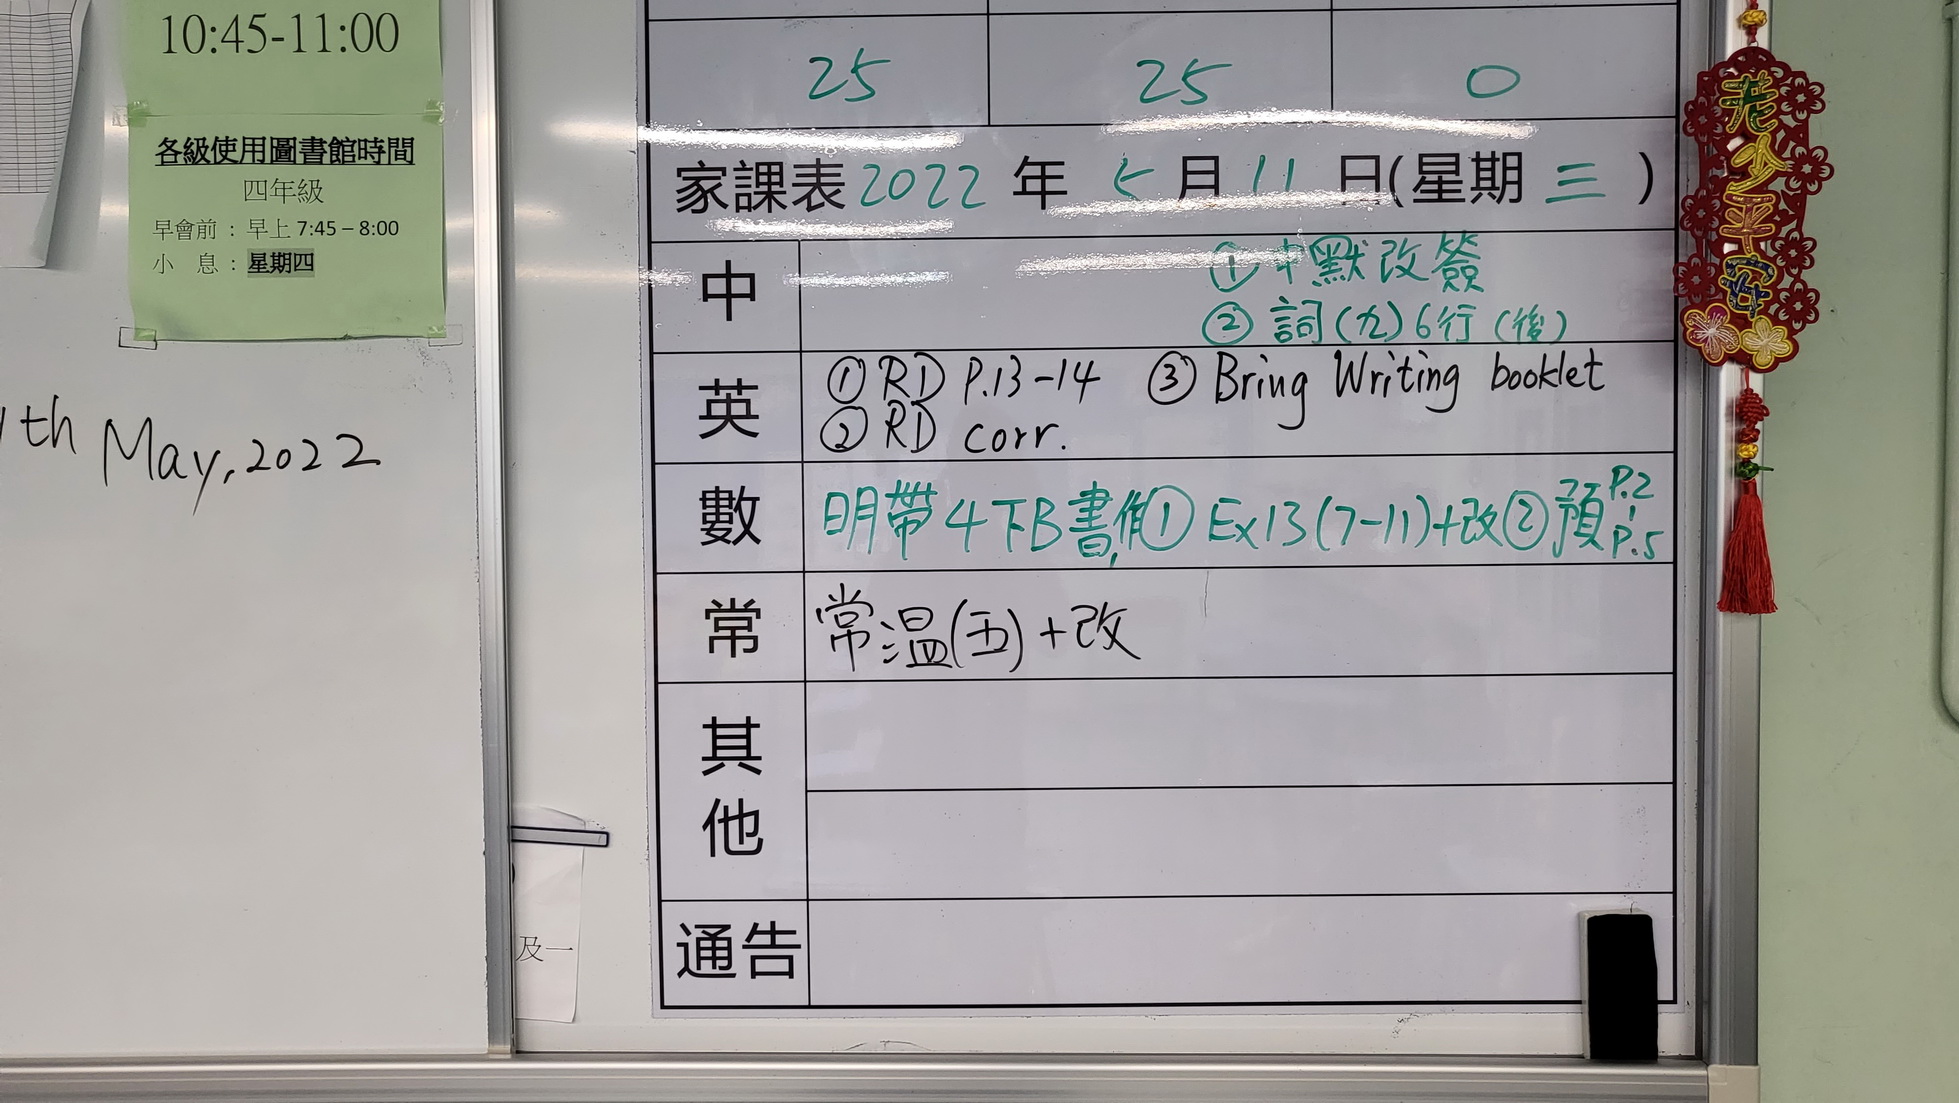 10:45-11:00
各級使用圖書館時間
四年級
早會前 : 早上 7:45 – 8:00
小 息 : 星期四
th May, 2022
25 25 0
家課表 2022 年 5 月 11 日(星期 三 )
中
① 中默改簽
② 詞(九) 6行 (後)
英
① RD P.13-14 ③ Bring Writing booklet
② RD corr.
數
明帶4下B書,作① Ex13(7-11)+改② 預 P.2
P.5
常
常溫(五)+改
其他
通告
及一
老少平安